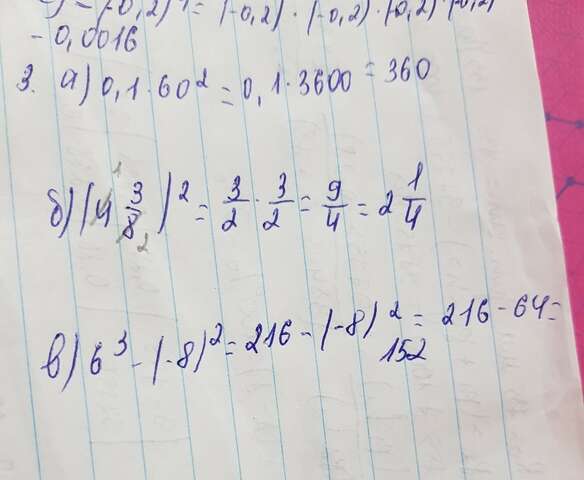 = (-0,2) · (-0,2) · (-0,2) · (-0,2)
- 0,0016
3. а) 0,1 · 60² = 0,1 · 3600 = 360
б) (4 3/8)² = 3/2 · 3/2 = 9/4 = 2 1/4
в) 6³ - (-8)² = 216 - (-8)² = 216 - 64 =
152